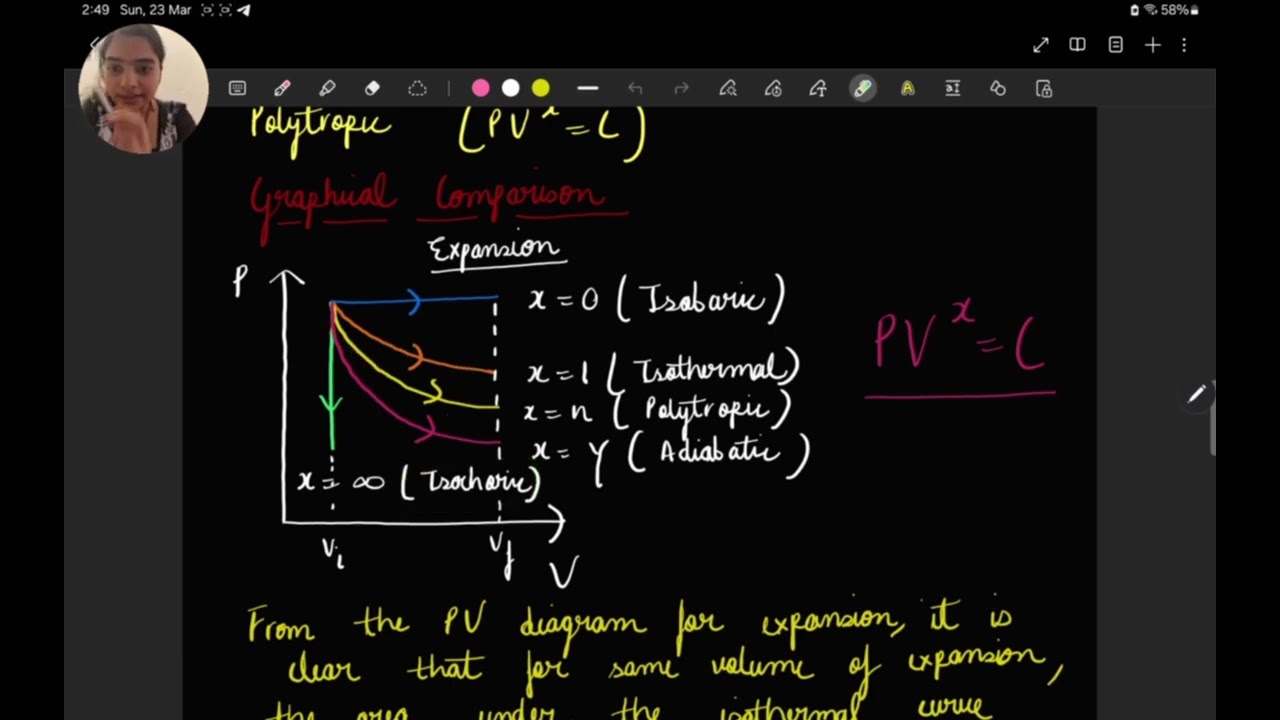 2:49 Sun, 23 Mar
58%
Polytropic (PVˣ = C)
Graphical Comparison
Expansion
P
x = 0 (Isobaric)
x = 1 (Isothermal)
x = n (Polytropic)
x = γ (Adiabatic)
x = ∞ (Isochoric)
Vi
Vf
V
PVˣ = C
From the PV diagram for expansion, it is
clear that for same volume of expansion,
the area under the isothermal curve